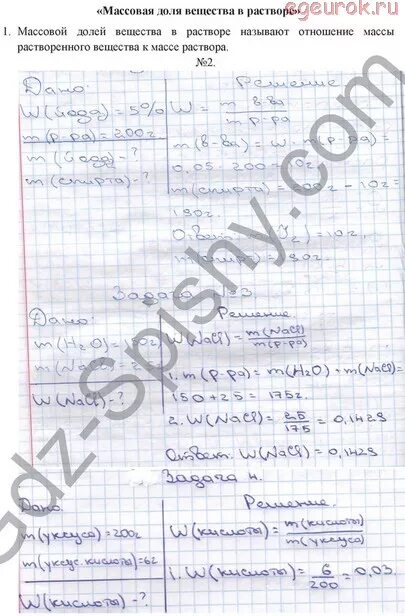 egeurok.ru
«Массовая доля вещества в растворе»
1. Массовой долей вещества в растворе называют отношение массы
растворенного вещества к массе раствора.
№2.
Дано: Решение
W(йода) = 5% W = m в-ва / m р-ра
m(р-ра) = 200г m(в-ва) = W · m(р-ра)
m(йода) - ? 0,05 · 200 = 10г
m(спирта) - ? m(спирта) = 200г - 10г =
190г.
Ответ: = 10г,
Задача №3.
Дано: Решение
m(H₂O) = 150г W(NaCl) = m(NaCl) / m(р-ра)
m(NaCl) = 1. m(р-ра) = m(H₂O) + m(NaCl) =
W(NaCl) - ? 150 + 25 = 175г.
2. W(NaCl) = 25/175 = 0,1429
Ответ: W(NaCl) = 0,1429
Задача 4.
Дано: Решение.
m(уксуса) = 200г W(кислоты) = m(кислоты) / m(уксуса)
m(уксус. кислоты) = 6г 1. W(кислоты) = 6/200 = 0,03.
W(кислоты) - ?
Gdz-Spishy.com